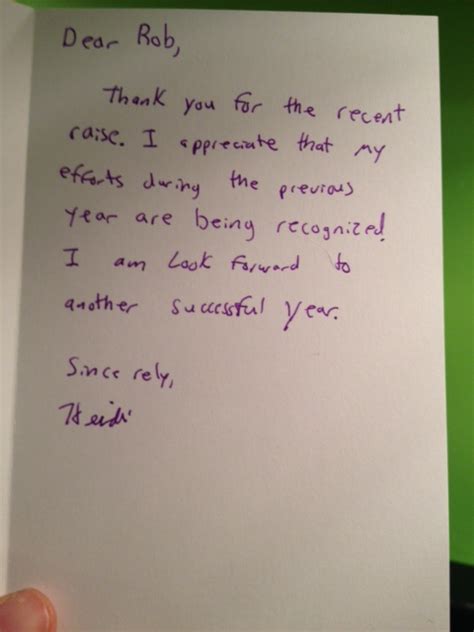 Dear Rob,
Thank you for the recent
raise. I appreciate that my
efforts during the previous
year are being recognized!
I am Look forward to
another successful year.
Since rely,
Heidi